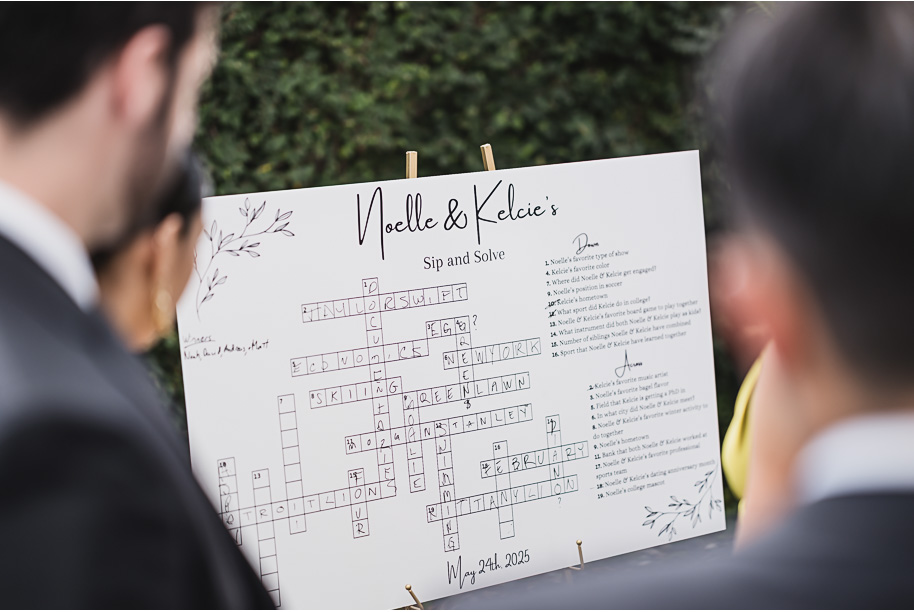 Noelle & Kelcie's
Sip and Solve
Down
1. Noelle's favorite type of show
4. Kelcie's favorite color
7. Where did Noelle & Kelcie get engaged?
9. Noelle's position in soccer
10. Kelcie's hometown
12. What sport did Kelcie do in college?
13. Noelle & Kelcie's favorite board game to play together
14. What instrument did both Noelle & Kelcie play as kids?
15. Number of siblings Noelle & Kelcie have combined
16. Sport that Noelle & Kelcie have learned together
Across
2. Kelcie's favorite music artist
3. Noelle's favorite bagel flavor
5. Field that Kelcie is getting a PhD in
6. In what city did Noelle & Kelcie meet?
8. Noelle & Kelcie's favorite winter activity to
do together
9. Noelle's hometown
11. Bank that both Noelle & Kelcie worked at
17. Noelle & Kelcie's favorite professional
sports team
18. Noelle & Kelcie's dating anniversary month
19. Noelle's college mascot
Winners
TAYLORSWIFT
EGG?
ECONOMICS
NEWYORK
SKIING
GREENLAWN
MORGANSTANLEY
FEBRUARY
DETROITLIONS
NITTANYLION
DOCUMENTARIES
GREEN
GOALIE
SWIMMING
FOUR
May 24th, 2025